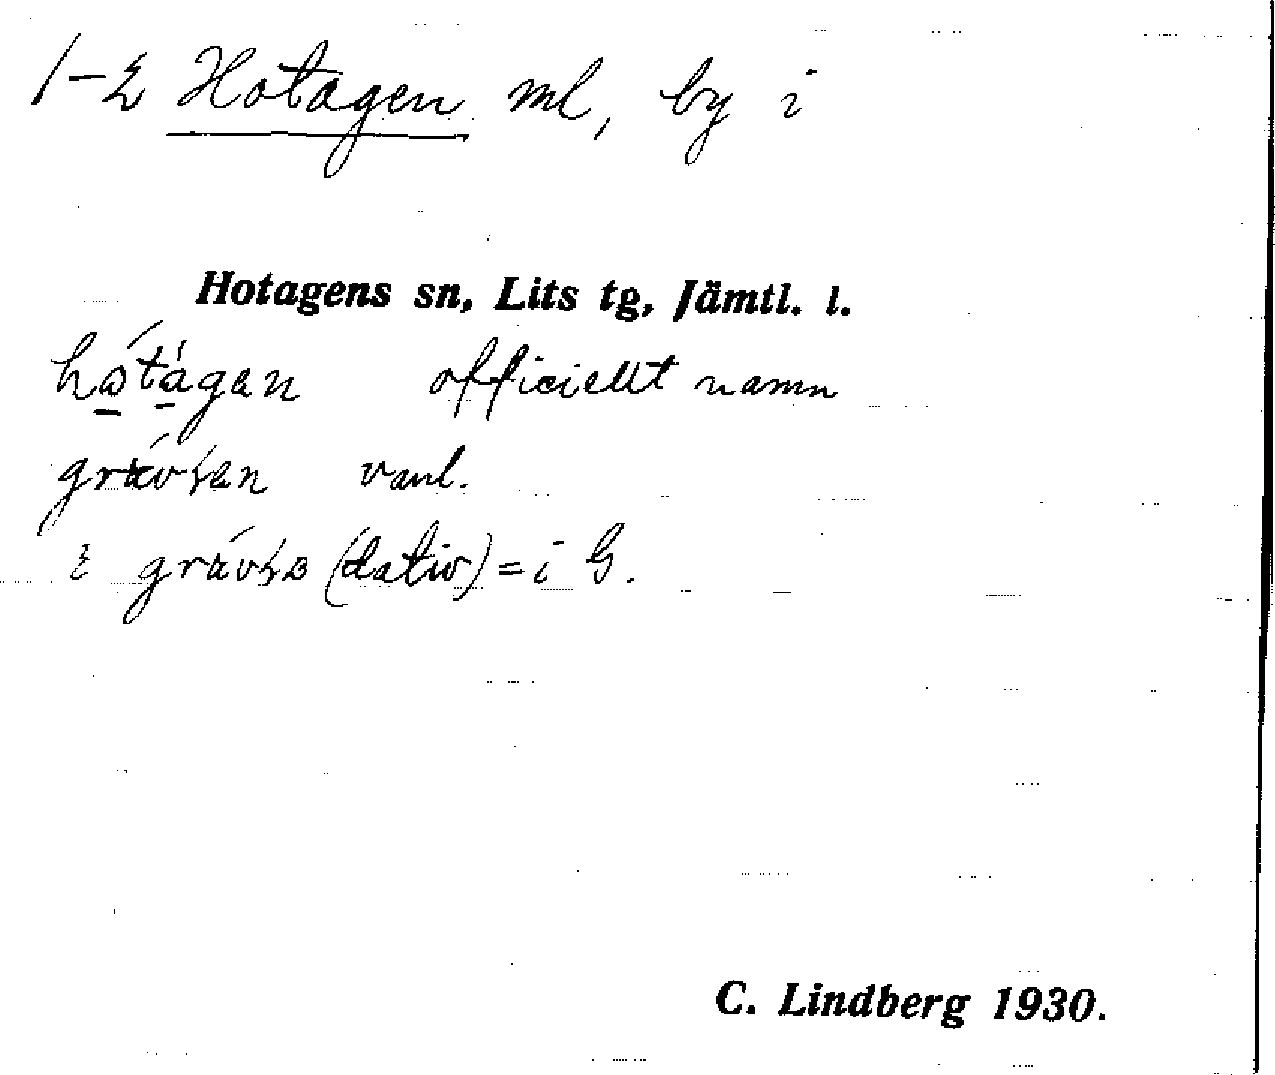 1-2 Hotagen ml, by i
Hotagens sn, Lits tg, Jämtl. l.
hótágen officiellt namn
vanl.
(dativ) = i G.
C. Lindberg 1930.